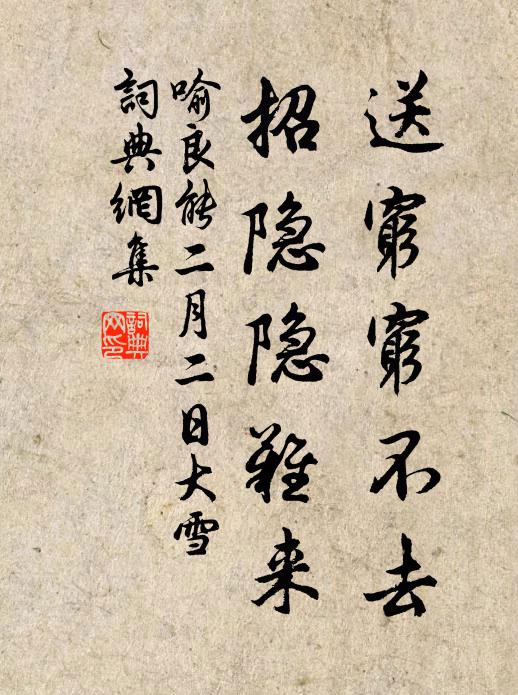 送窮窮不去
招隐隐難来
喻良能二月二日大雪
詞典網集
詞典網印